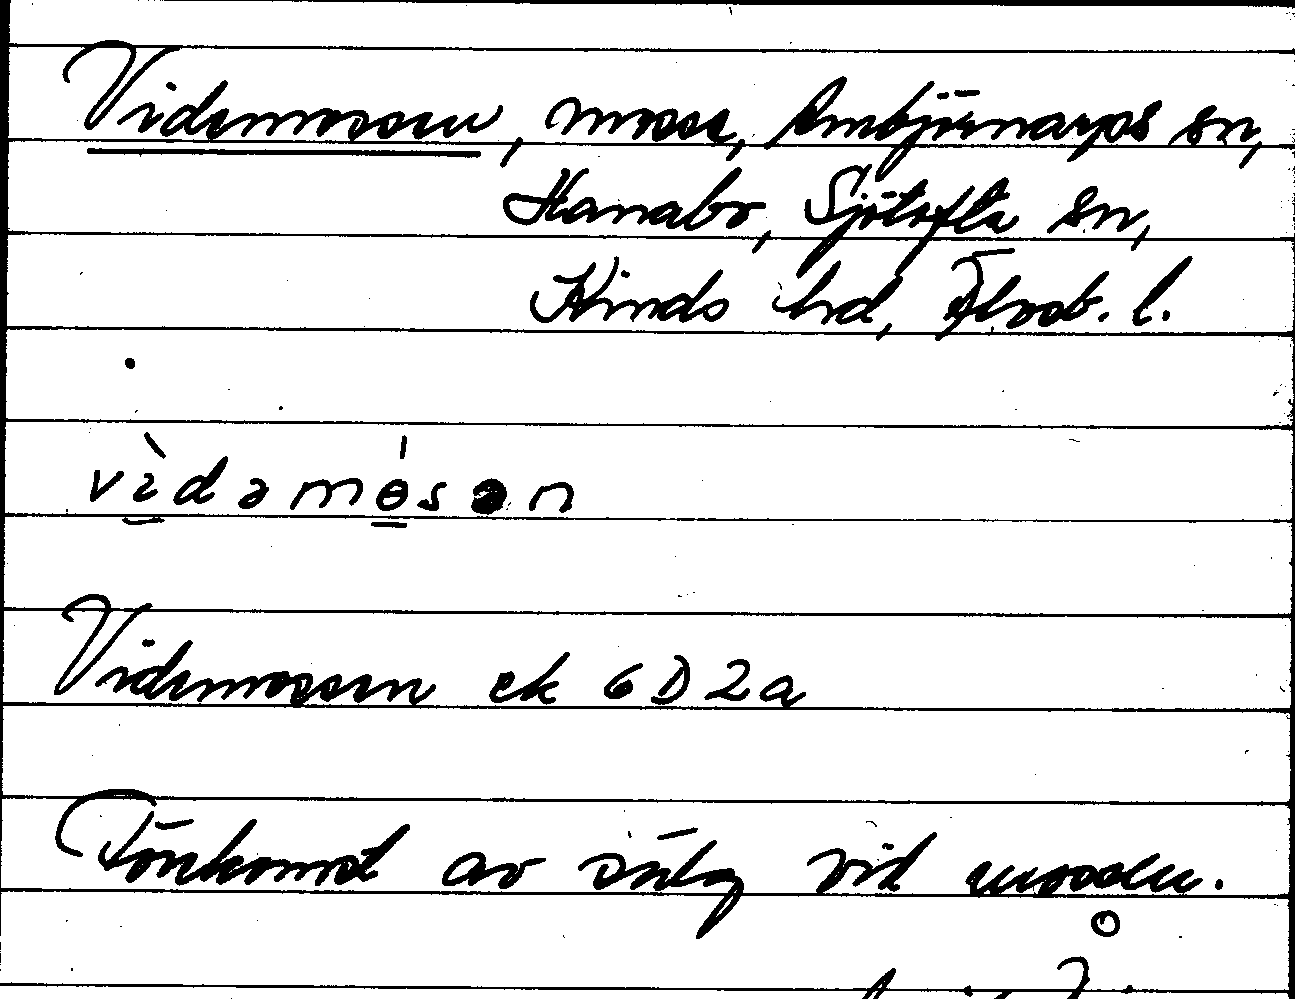 Videmossen, mosse, Ambjörnarps sn,
Hanabo, Sjötofta sn,
Kinds hd, Älvsb. l.
vìdəmɵ́sən
Videmossen ek 6D2a
Förekomst av sälg vid mossen.